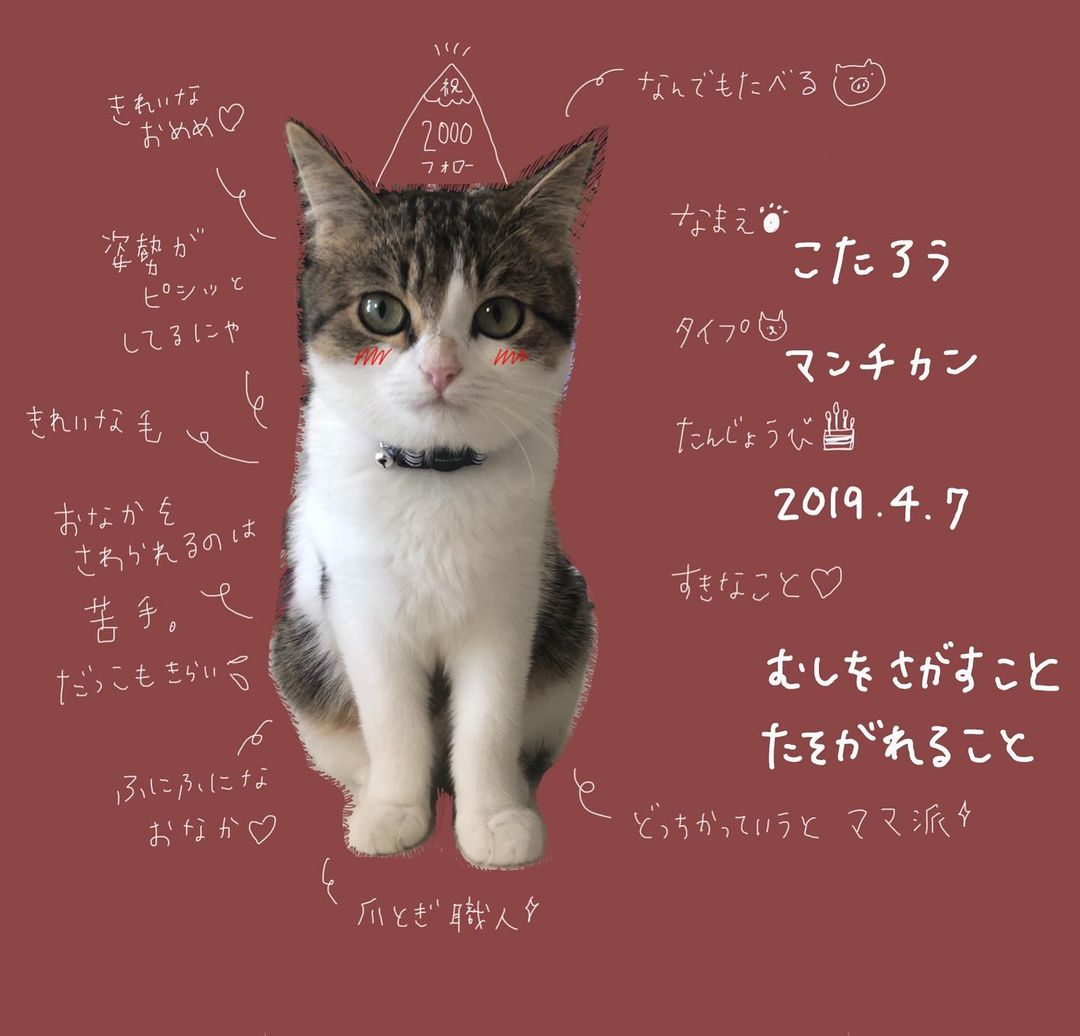 祝
2000
フォロー
きれいな
おめめ♡
姿勢が
ピシッと
してるにゃ
きれいな毛
おなかを
さわられるのは
苦手。
だっこもきらい
ふにふにな
おなか♡
爪とぎ職人
なんでもたべる
なまえ
こたろう
タイプ
マンチカン
たんじょうび
2019.4.7
すきなこと♡
むしをさがすこと
たそがれること
どっちかっていうとママ派